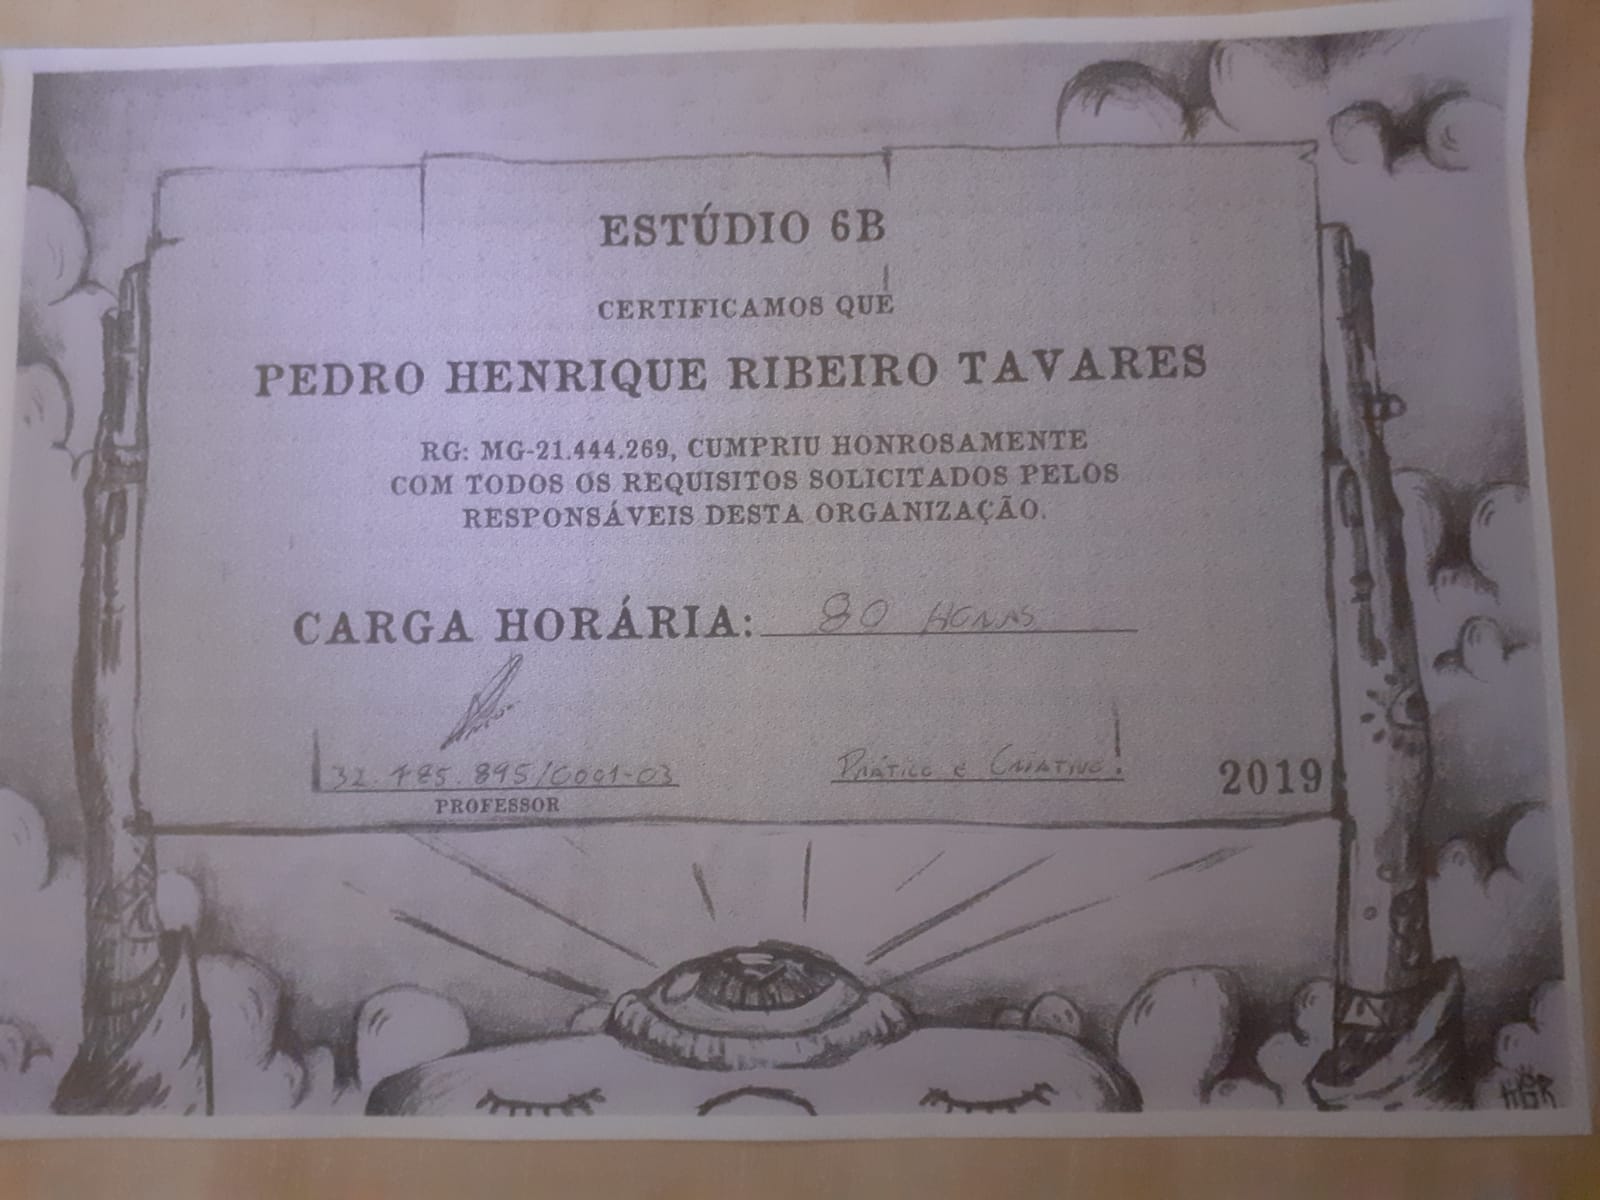 ESTÚDIO 6B
CERTIFICAMOS QUE
PEDRO HENRIQUE RIBEIRO TAVARES
RG: MG-21.444.269, CUMPRIU HONROSAMENTE
COM TODOS OS REQUISITOS SOLICITADOS PELOS
RESPONSÁVEIS DESTA ORGANIZAÇÃO.
CARGA HORÁRIA: 80 HORAS
PRÁTICO E CRIATIVO!
PROFESSOR
2019